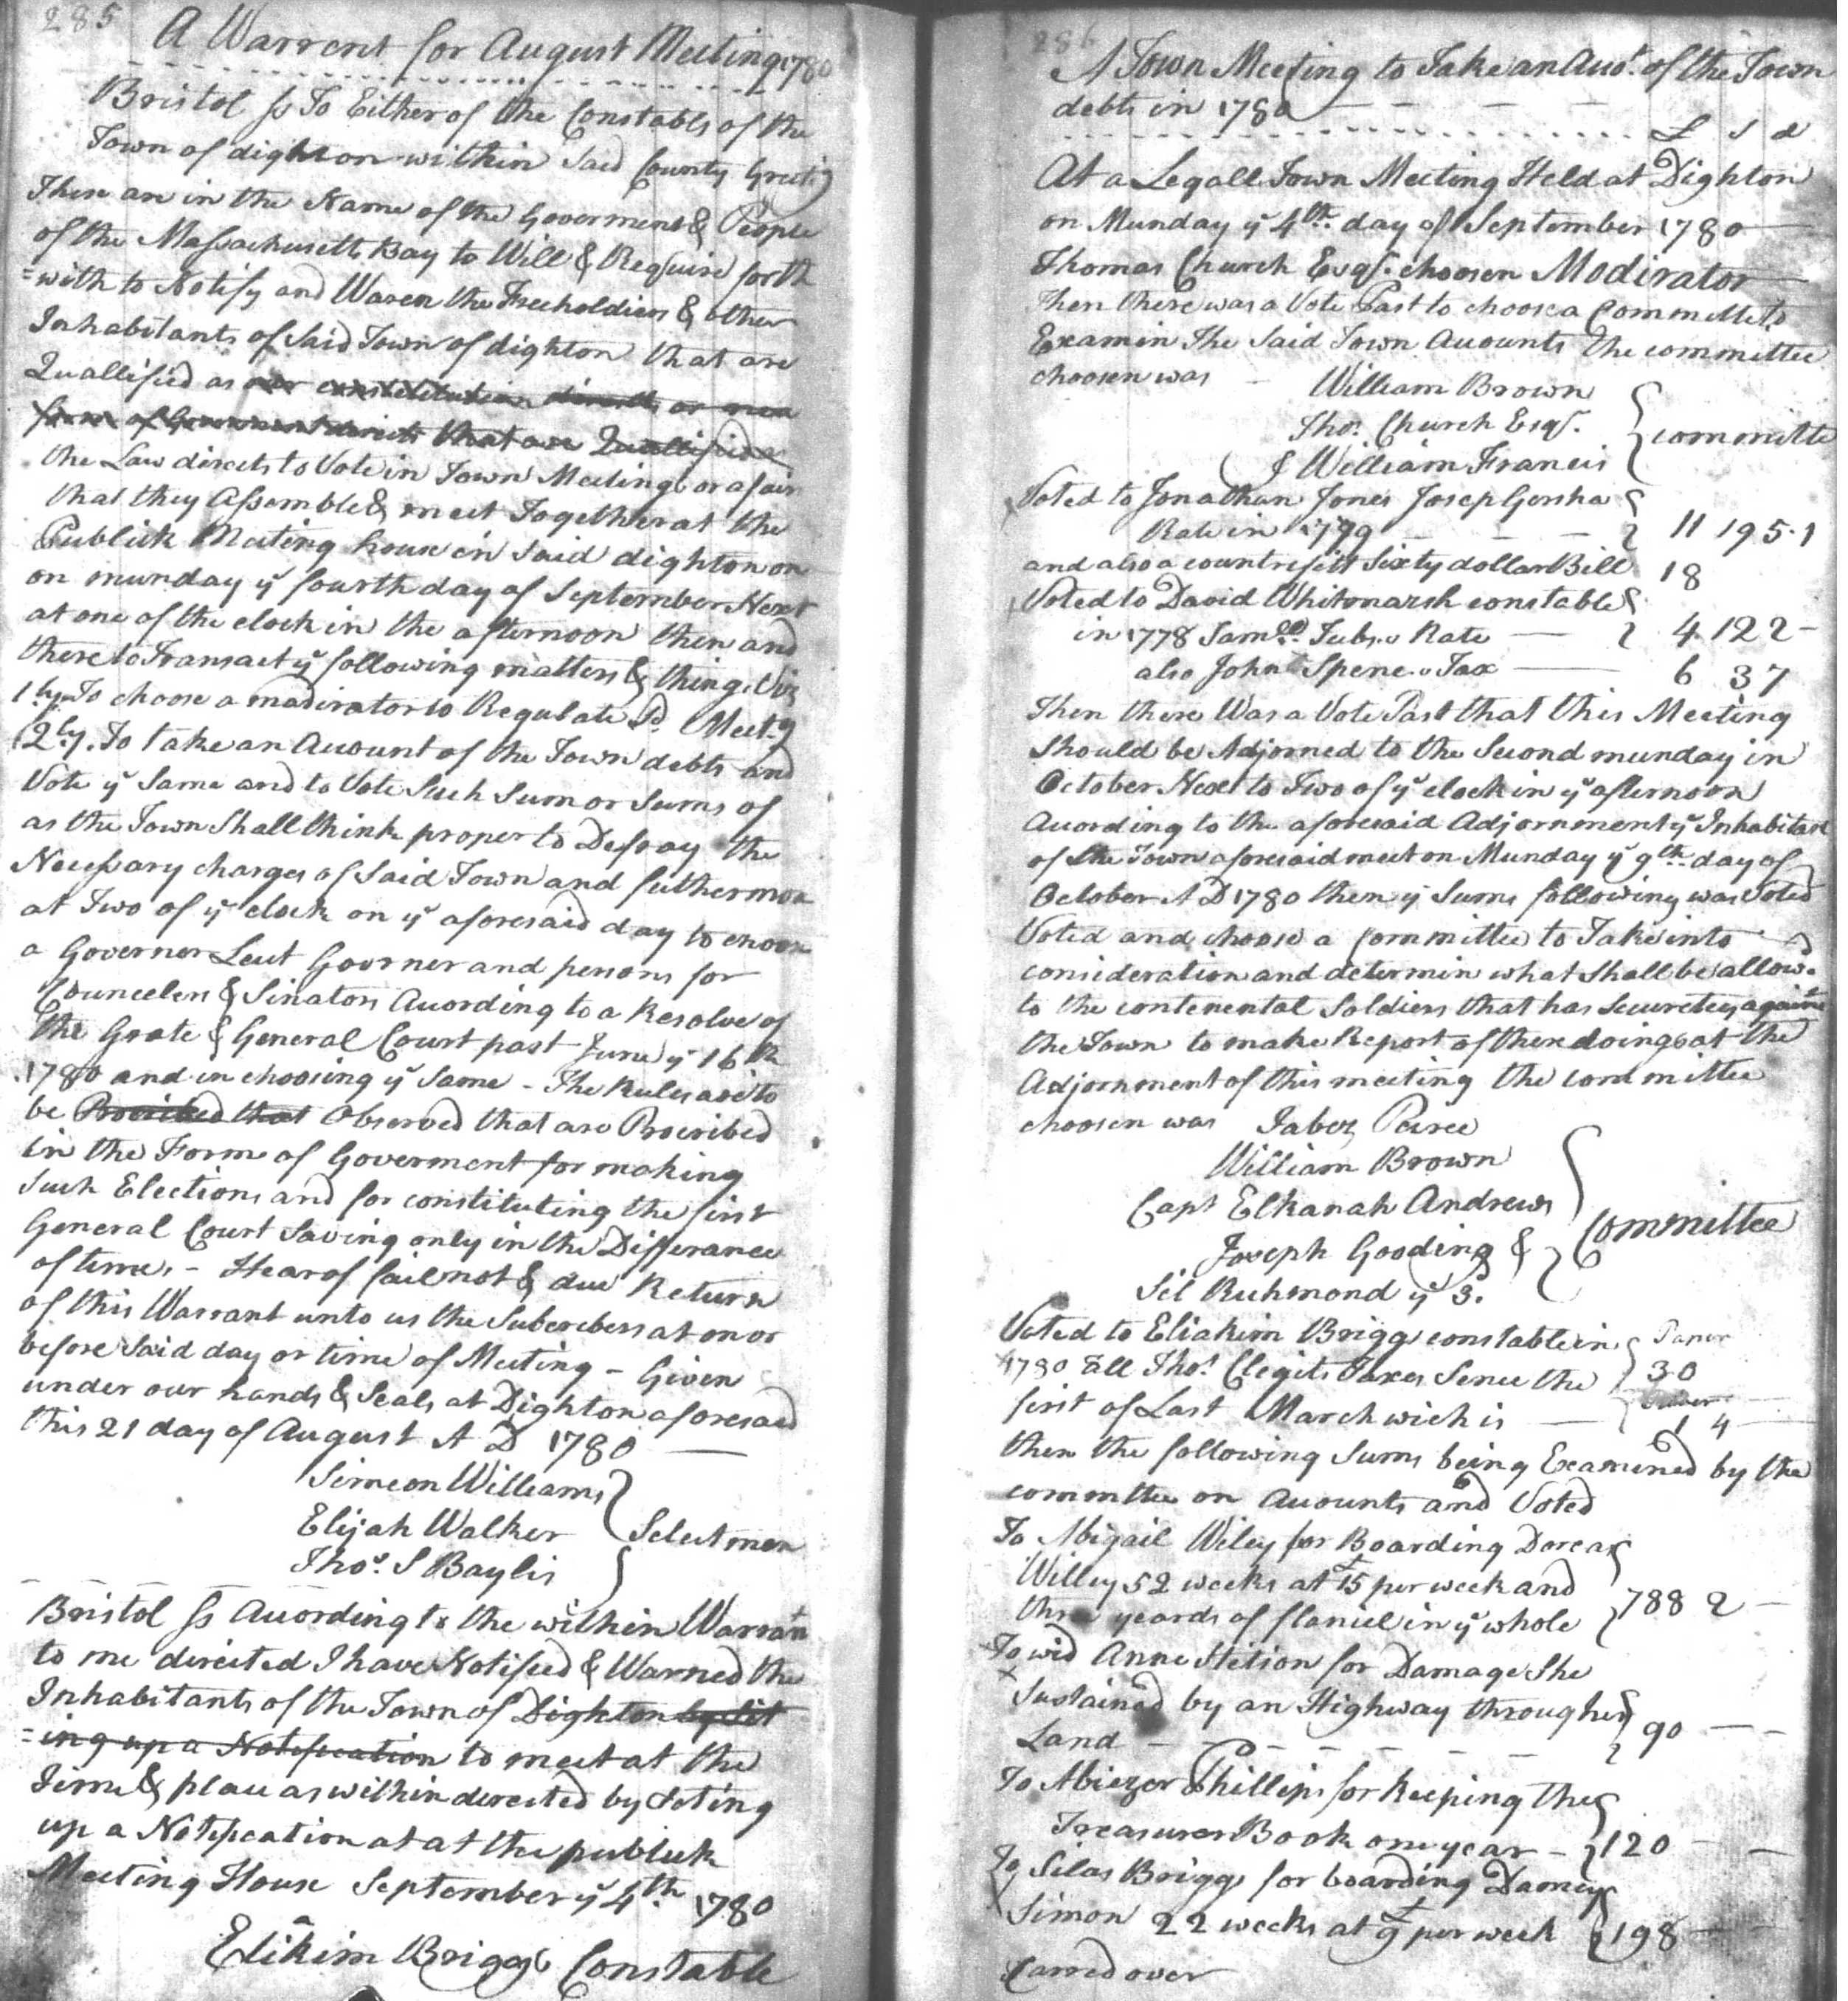 285
A Warrent for August Meeting 1780
Bristol ss To Either of the Constabls of the
Town of dighton within Said County Greeting
These are in the Name of the Goverment & People
of the Massachusetts Bay to Will & Require forth
=with to Notify and Waren the Freeholders & other
Inhabitants of Said Town of dighton that are
Quallified as our constitution directs or new
form of Goverment directs that are Quallified as
the Law directs to Vote in Town Meeting or afair
that they Assemble & meet Together at the
Publick Meeting house in Said dighton on
on munday yͤ fourth day of September Next
at one of the clock in the afternoon then and
there to Transact yͤ following matters & things Viz
1ly To choose a madirator to Regulate Sd. Meetg
2ly. To take an Account of the Town debts and
Vote yͤ Same and to Vote Such Sum or Sums of
as the Town Shall think proper to Defray the
Necessary charges of Said Town and futhermore
at Two of yͤ clock on yͤ aforesaid day to choose
a Governer Leut Goovrner and persons for
Councelers & Sinators According to a Resolve of
the Grate & General Court past June yͤ 16th
1780 and in choosing yͤ Same - The Rules are to
be Procribed that Observed that are Procribed
in the Form of Goverment for making
Such Elections and for constituting the first
General Court Saving only in the Differance
of time, - Hearof fail not & due Return
of this Warrant unto us the Subcribers at on or
before Said day or time of Meeting - Given
under our hands & Seals at Dighton aforesaid
this 21 day of August A D 1780
Simeon Williams
Elijah Walker Selectmen
Thos. S Baylis
Bristol ss According to the within Warrant
to me directed I have Notified & Warned the
Inhabitants of the Town of Dighton by Sit
=ing up a Notification to meet at the
Time & place as within derected by Seting
up a Notification at at the publick
Meeting House September yͤ 4th 1780
Elikim Briggs Constable
286
A Town Meeting to Take an Auot. of the Town
debts in 1780
£ s d
At a Legall Town Meeting Held at Dighton
on Munday yͤ 4th. day of September 1780
Thomas Church Esqr. choosen Modirator
Then there was a Vote Past to choose a Committe to
Examin The Said Town Accounts The committee
choosen was William Brown
Thos. Church Esqr. committe
& William Francis
Voted to Jonathan Jones Josep Gersha
Rate in 1779 11 19 5.1
and also a countrefitt Sixty dollar Bill 18
Voted to David Whitmarsh constable
in 1778 Samll. Tubs Rate 4 12 2 -
also John Spenc. Tax 6 3 7
Then there Was a Vote Past that this Meeting
Should be Adjorned to the Second munday in
October Next to Two of yͤ clock in yͤ afternoon
According to the aforesaid Adjornment yͤ Inhabitants
of the Town aforesaid meet on Munday yͤ 9th day of
October A D 1780 then yͤ Sums following was Voted
Voted and choose a Committee to Take into
consideration and determin what Shall be allowd
to the contenental Soldiers that has Securetey against
the Town to make Report of there doings at the
Adjornment of this meeting the committee
choosen was Jabez Peirce
William Brown
Capt Elkanah Andrews
Joseph Gooding & Committee
Sil Richmond yͤ 3.
Voted to Eliakim Briggs constable in Paper
1780 all Thos. Clegits Taxes Sence the 30
first of Last March wich is Silver
1 4
then the following Sums being Examened by the
committe on Accounts and Voted
To Abigail Wiley for Boarding Dorcas
Willey 52 weeks at £15 per week and
three yeards of flaniel in yͤ whole 788 2 -
To wid Anne Stetson for Damage She
Sustained by an Highway through her
Land 90 - -
To Abiezer Phillips for keeping the
Treasurer Book one year - 120 - -
To Silas Briggs for boarding Damey
Simon 22 weeks at £9 per week 198 - -
Carred over